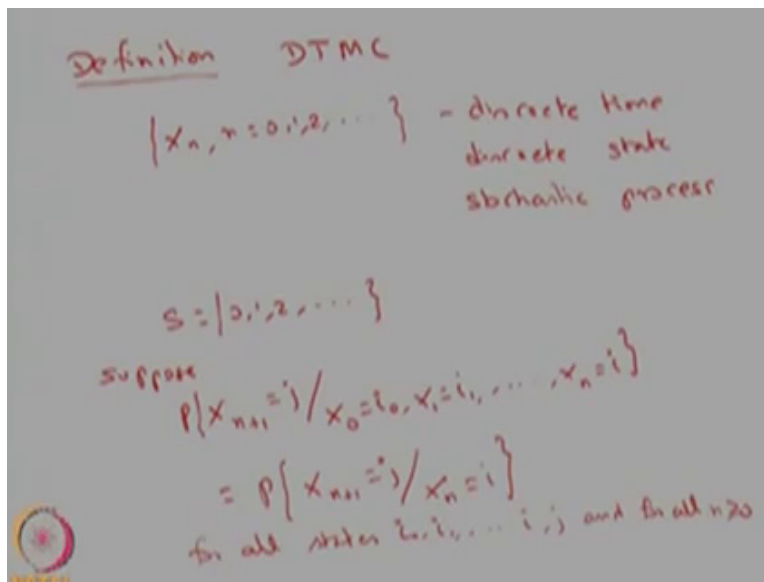 Definition DTMC
{Xn, n=0,1,2, ... } - discrete time
discrete state
stochastic process
S={0,1,2, ... }
suppose
P{Xn+1=j/X0=i0, X1=i1, ..., Xn=i}
= P{Xn+1=j/Xn=i}
for all states i0, i1, ... i, j and for all n≥0